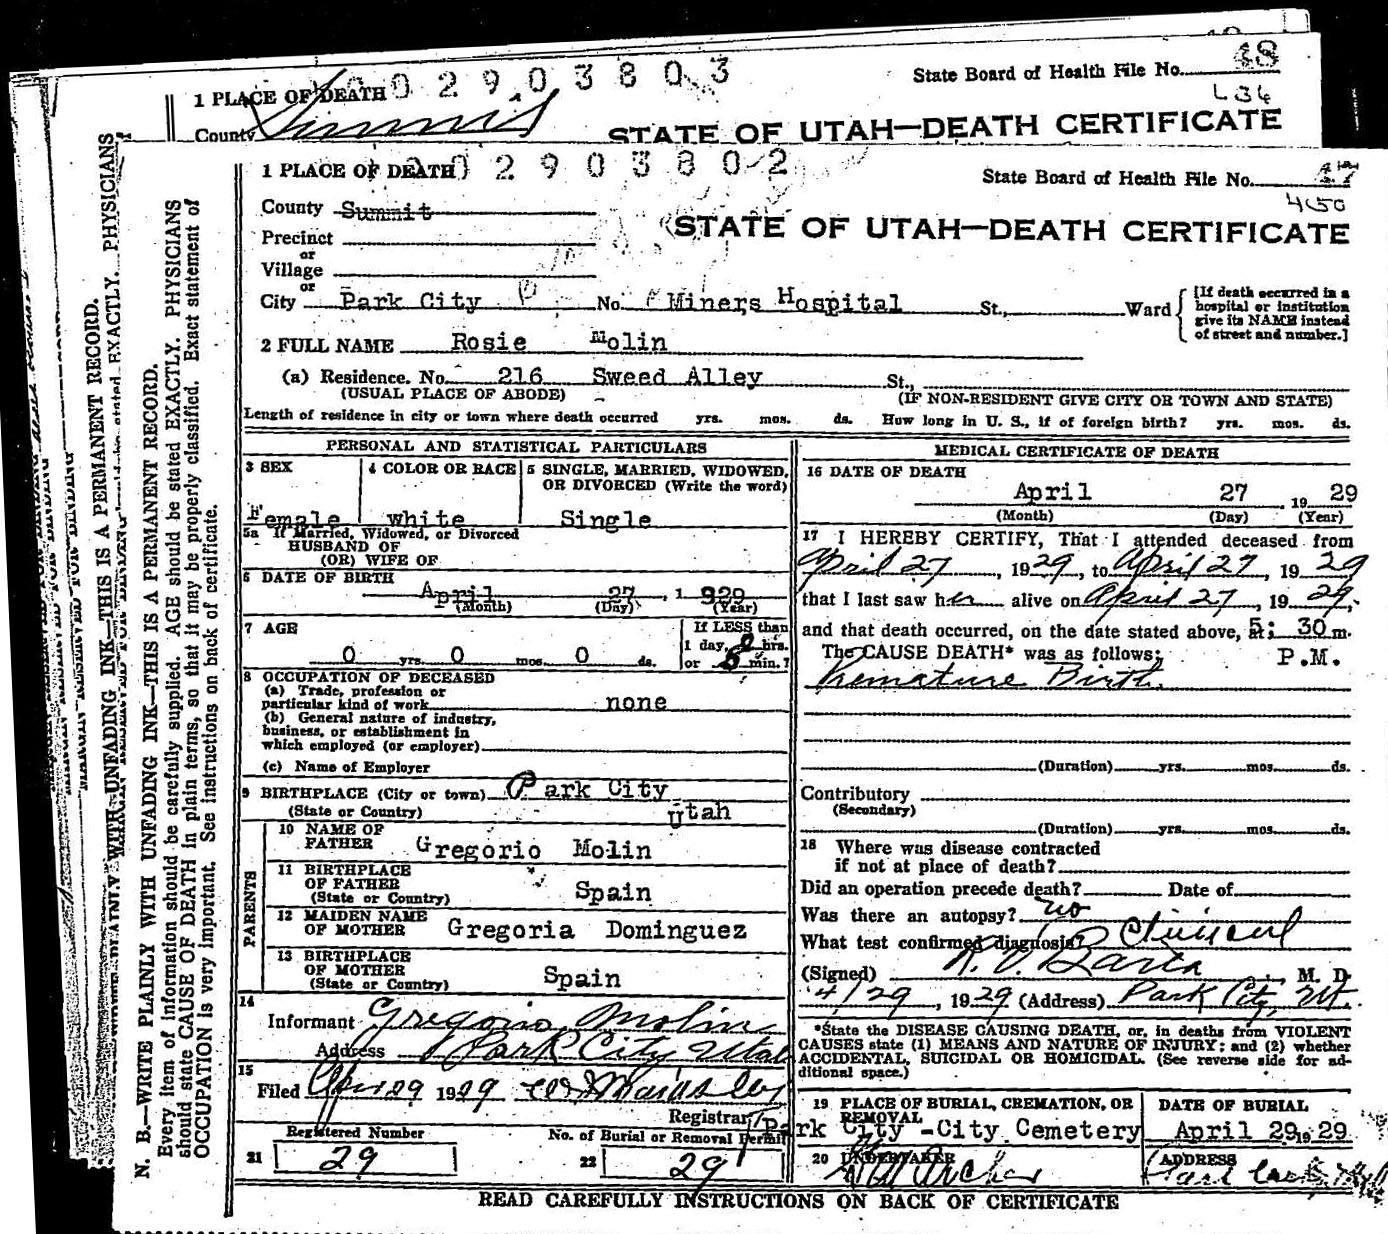 0 0 2 9 0 3 8 0 3
State Board of Health File No. 48
L36
1 PLACE OF DEATH
County Summit
STATE OF UTAH—DEATH CERTIFICATE
0 2 9 0 3 8 0 2
1 PLACE OF DEATH
State Board of Health File No. 47
4500
County Summit
STATE OF UTAH—DEATH CERTIFICATE
Precinct
or
Village
or
City Park City No. Miners Hospital St., Ward
[If death occurred in a hospital or institution give its NAME instead of street and number.]
2 FULL NAME Rosie Molin
(a) Residence. No. 216 Sweed Alley St.,
(USUAL PLACE OF ABODE) (IF NON-RESIDENT GIVE CITY OR TOWN AND STATE)
Length of residence in city or town where death occurred yrs. mos. ds. How long in U. S., if of foreign birth? yrs. mos. ds.
PERSONAL AND STATISTICAL PARTICULARS
3 SEX 4 COLOR OR RACE 5 SINGLE, MARRIED, WIDOWED,
OR DIVORCED (Write the word)
Female white Single
5a If Married, Widowed, or Divorced
HUSBAND OF
(OR) WIFE OF
6 DATE OF BIRTH
April 27, 1 929
(Month) (Day) (Year)
7 AGE If LESS than
1 day, hrs.
0 yrs. 0 mos. 0 ds. or 5 min.?
8 OCCUPATION OF DECEASED
(a) Trade, profession or
particular kind of work none
(b) General nature of industry,
business, or establishment in
which employed (or employer)
(c) Name of Employer
9 BIRTHPLACE (City or town) Park City
(State or Country) Utah
PARENTS
10 NAME OF
FATHER Gregorio Molin
11 BIRTHPLACE
OF FATHER
(State or Country) Spain
12 MAIDEN NAME
OF MOTHER Gregoria Dominguez
13 BIRTHPLACE
OF MOTHER
(State or Country) Spain
14
Informant Gregorio Molin
Address Park City Utah
15
Filed Apr 29 1929
Registrar
Registered Number No. of Burial or Removal Permit
21 29 22 29
MEDICAL CERTIFICATE OF DEATH
16 DATE OF DEATH
April 27 1929
(Month) (Day) (Year)
17 I HEREBY CERTIFY, That I attended deceased from
April 27, 1929, to April 27, 1929
that I last saw her alive on April 27, 1929,
and that death occurred, on the date stated above, at 5: 30 m.
The CAUSE DEATH* was as follows: P.M.
Premature Birth
(Duration) yrs. mos. ds.
Contributory
(Secondary)
(Duration) yrs. mos. ds.
18 Where was disease contracted
if not at place of death?
Did an operation precede death? Date of
Was there an autopsy? no
What test confirmed diagnosis? Clinical
(Signed) M. D.
4/29, 1929 (Address) Park City, Ut.
*State the DISEASE CAUSING DEATH, or, in deaths from VIOLENT
CAUSES state (1) MEANS AND NATURE OF INJURY; and (2) whether
ACCIDENTAL, SUICIDAL OR HOMICIDAL. (See reverse side for ad-
ditional space.)
19 PLACE OF BURIAL, CREMATION, OR
REMOVAL
Park City -City Cemetery
DATE OF BURIAL
April 29, 1929
20 UNDERTAKER
ADDRESS
Park City
READ CAREFULLY INSTRUCTIONS ON BACK OF CERTIFICATE
N. B.—WRITE PLAINLY WITH UNFADING INK—THIS IS A PERMANENT RECORD.
Every item of information should be carefully supplied. AGE should be stated EXACTLY. PHYSICIANS
should state CAUSE OF DEATH in plain terms, so that it may be properly classified. Exact statement of
OCCUPATION is very important. See instructions on back of certificate.